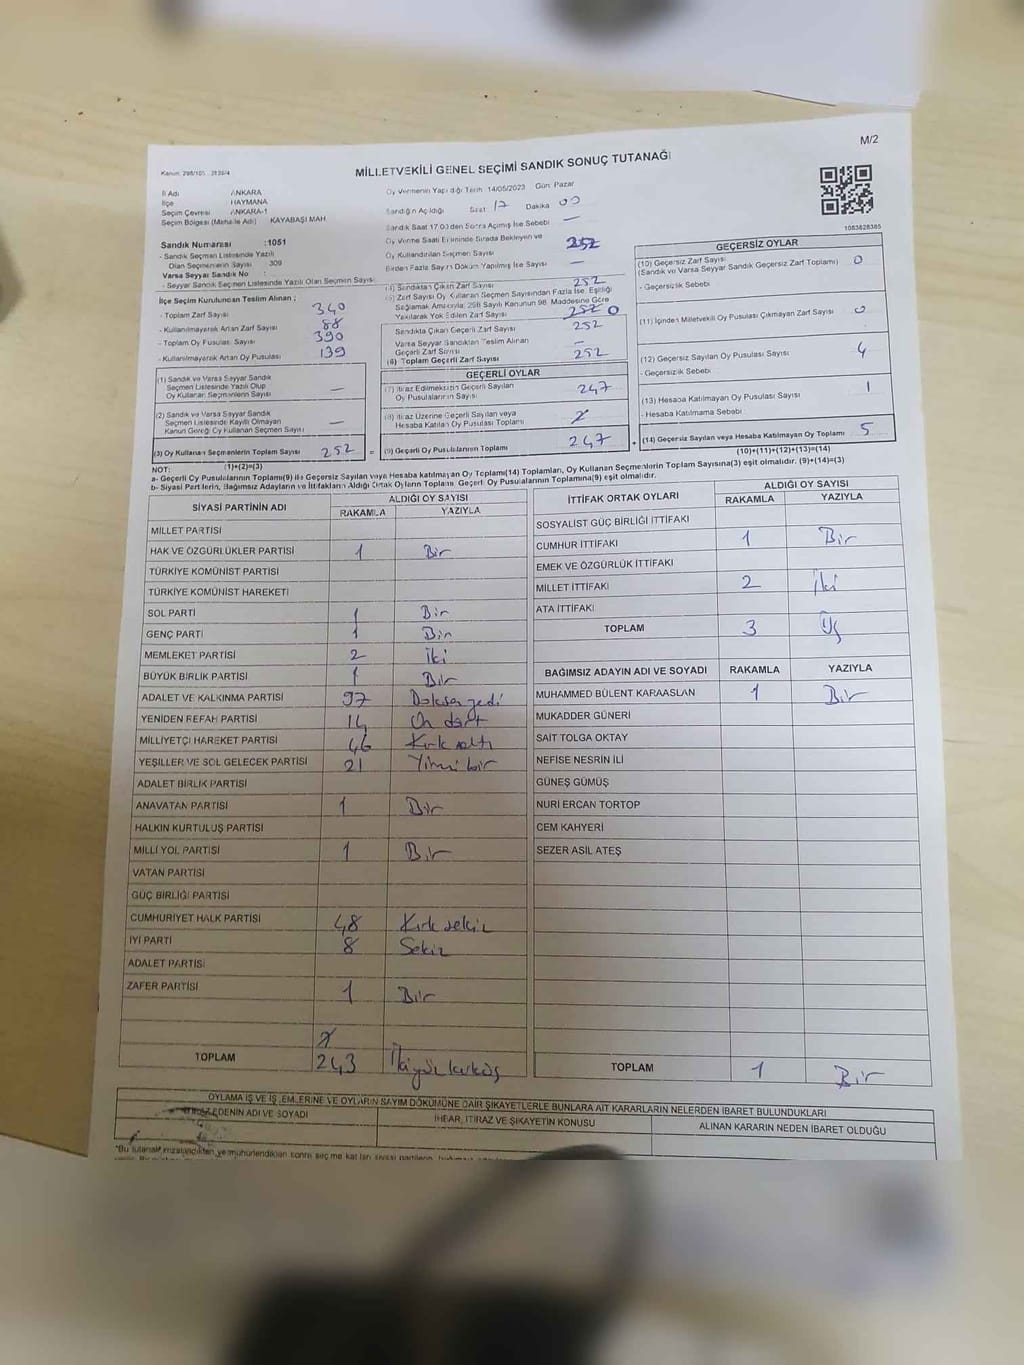 M/2
Kanun: 298/105
MİLLETVEKİLİ GENEL SEÇİMİ SANDIK SONUÇ TUTANAĞI
İl Adı : ANKARA
İlçe : HAYMANA
Seçim Çevresi : ANKARA-1
Seçim Bölgesi (Mahalle Adı) : KAYABAŞI MAH
Sandık Numarası :1051
- Sandık Seçmen Listesinde Yazılı
Olan Seçmenlerin Sayısı : 309
Varsa Seyyar Sandık No :
- Seyyar Sandık Seçmen Listesinde Yazılı Olan Seçmen Sayısı
İlçe Seçim Kurulundan Teslim Alınan ;
- Toplam Zarf Sayısı 340
- Kullanılmayarak Artan Zarf Sayısı 88
- Toplam Oy Pusulası Sayısı 390
- Kullanılmayarak Artan Oy Pusulası 139
(1) Sandık ve Varsa Seyyar Sandık
Seçmen Listesinde Yazılı Olup
Oy Kullanan Seçmenlerin Sayısı —
(2) Sandık ve Varsa Seyyar Sandık
Seçmen Listesinde Kayıtlı Olmayan
Kanun Gereği Oy Kullanan Seçmen Sayısı —
(3) Oy Kullanan Seçmenlerin Toplam Sayısı 252 =
(1)+(2)=(3)
Oy Vermenin Yapıldığı Tarih 14/05/2023 Gün: Pazar
Sandığın Açıldığı Saat 17 Dakika 00
Sandık Saat 17:00'den Sonra Açılmış İse Sebebi —
Oy Verme Saati Bitiminde Sırada Bekleyen ve
Oy Kullandırılan Seçmen Sayısı 252
Birden Fazla Sayım Döküm Yapılmış İse Sayısı —
(4) Sandıktan Çıkan Zarf Sayısı 252
(5) Zarf Sayısı Oy Kullanan Seçmen Sayısından Fazla İse, Eşitliği
Sağlamak Amacıyla, 298 Sayılı Kanunun 98. Maddesine Göre
Yakılarak Yok Edilen Zarf Sayısı 252 0
Sandıkta Çıkan Geçerli Zarf Sayısı 252
Varsa Seyyar Sandıktan Teslim Alınan
Geçerli Zarf Sayısı —
(6) Toplam Geçerli Zarf Sayısı 252
GEÇERLİ OYLAR
(7) İtiraz Edilmeksizin Geçerli Sayılan
Oy Pusulalarının Sayısı 247
(8) İtiraz Üzerine Geçerli Sayılan veya
Hesaba Katılan Oy Pusulası Toplamı
(9) Geçerli Oy Pusulalarının Toplamı 247 +
1083828385
GEÇERSİZ OYLAR
(10) Geçersiz Zarf Sayısı 0
(Sandık ve Varsa Seyyar Sandık Geçersiz Zarf Toplamı)
- Geçersizlik Sebebi
(11) İçinden Milletvekili Oy Pusulası Çıkmayan Zarf Sayısı 0
(12) Geçersiz Sayılan Oy Pusulası Sayısı 4
- Geçersizlik Sebebi
(13) Hesaba Katılmayan Oy Pusulası Sayısı 1
- Hesaba Katılmama Sebebi
(14) Geçersiz Sayılan veya Hesaba Katılmayan Oy Toplamı 5
(10)+(11)+(12)+(13)=(14)
NOT:
a- Geçerli Oy Pusulalarının Toplamı(9) ile Geçersiz Sayılan veya Hesaba katılmayan Oy Toplamı(14) Toplamları, Oy Kullanan Seçmenlerin Toplam Sayısına(3) eşit olmalıdır. (9)+(14)=(3)
b- Siyasi Partilerin, Bağımsız Adayların ve İttifakların Aldığı Ortak Oyların Toplamı, Geçerli Oy Pusulalarının Toplamına(9) eşit olmalıdır.
SİYASİ PARTİNİN ADI ALDIĞI OY SAYISI
RAKAMLA YAZIYLA
MİLLET PARTİSİ
HAK VE ÖZGÜRLÜKLER PARTİSİ 1 Bir
TÜRKİYE KOMÜNİST PARTİSİ
TÜRKİYE KOMÜNİST HAREKETİ
SOL PARTİ 1 Bir
GENÇ PARTİ 1 Bir
MEMLEKET PARTİSİ 2 İki
BÜYÜK BİRLİK PARTİSİ 1 Bir
ADALET VE KALKINMA PARTİSİ 97 Doksan yedi
YENİDEN REFAH PARTİSİ 14 On dört
MİLLİYETÇİ HAREKET PARTİSİ 46 Kırk altı
YEŞİLLER VE SOL GELECEK PARTİSİ 21 Yirmi bir
ADALET BİRLİK PARTİSİ
ANAVATAN PARTİSİ 1 Bir
HALKIN KURTULUŞ PARTİSİ
MİLLİ YOL PARTİSİ 1 Bir
VATAN PARTİSİ
GÜÇ BİRLİĞİ PARTİSİ
CUMHURİYET HALK PARTİSİ 48 Kırk sekiz
İYİ PARTİ 8 Sekiz
ADALET PARTİSİ
ZAFER PARTİSİ 1 Bir
TOPLAM 243 İkiyüz kırküç
İTTİFAK ORTAK OYLARI ALDIĞI OY SAYISI
RAKAMLA YAZIYLA
SOSYALİST GÜÇ BİRLİĞİ İTTİFAKI
CUMHUR İTTİFAKI 1 Bir
EMEK VE ÖZGÜRLÜK İTTİFAKI
MİLLET İTTİFAKI 2 İki
ATA İTTİFAKI
TOPLAM 3 Üç
BAĞIMSIZ ADAYIN ADI VE SOYADI RAKAMLA YAZIYLA
MUHAMMED BÜLENT KARAASLAN 1 Bir
MUKADDER GÜNERİ
SAİT TOLGA OKTAY
NEFİSE NESRİN İLİ
GÜNEŞ GÜMÜŞ
NURİ ERCAN TORTOP
CEM KAHYERİ
SEZER ASİL ATEŞ
TOPLAM 1 Bir
OYLAMA İŞ VE İŞLEMLERİNE VE OYLARIN SAYIM DÖKÜMÜNE DAİR ŞİKAYETLERLE BUNLARA AİT KARARLARIN NELERDEN İBARET BULUNDUKLARI
İTİRAZ EDENİN ADI VE SOYADI
İHBAR, İTİRAZ VE ŞİKAYETİN KONUSU
ALINAN KARARIN NEDEN İBARET OLDUĞU
"Bu tutanak imzalandıktan ve mühürlendikten sonra seçime katılan siyasi partilerin,